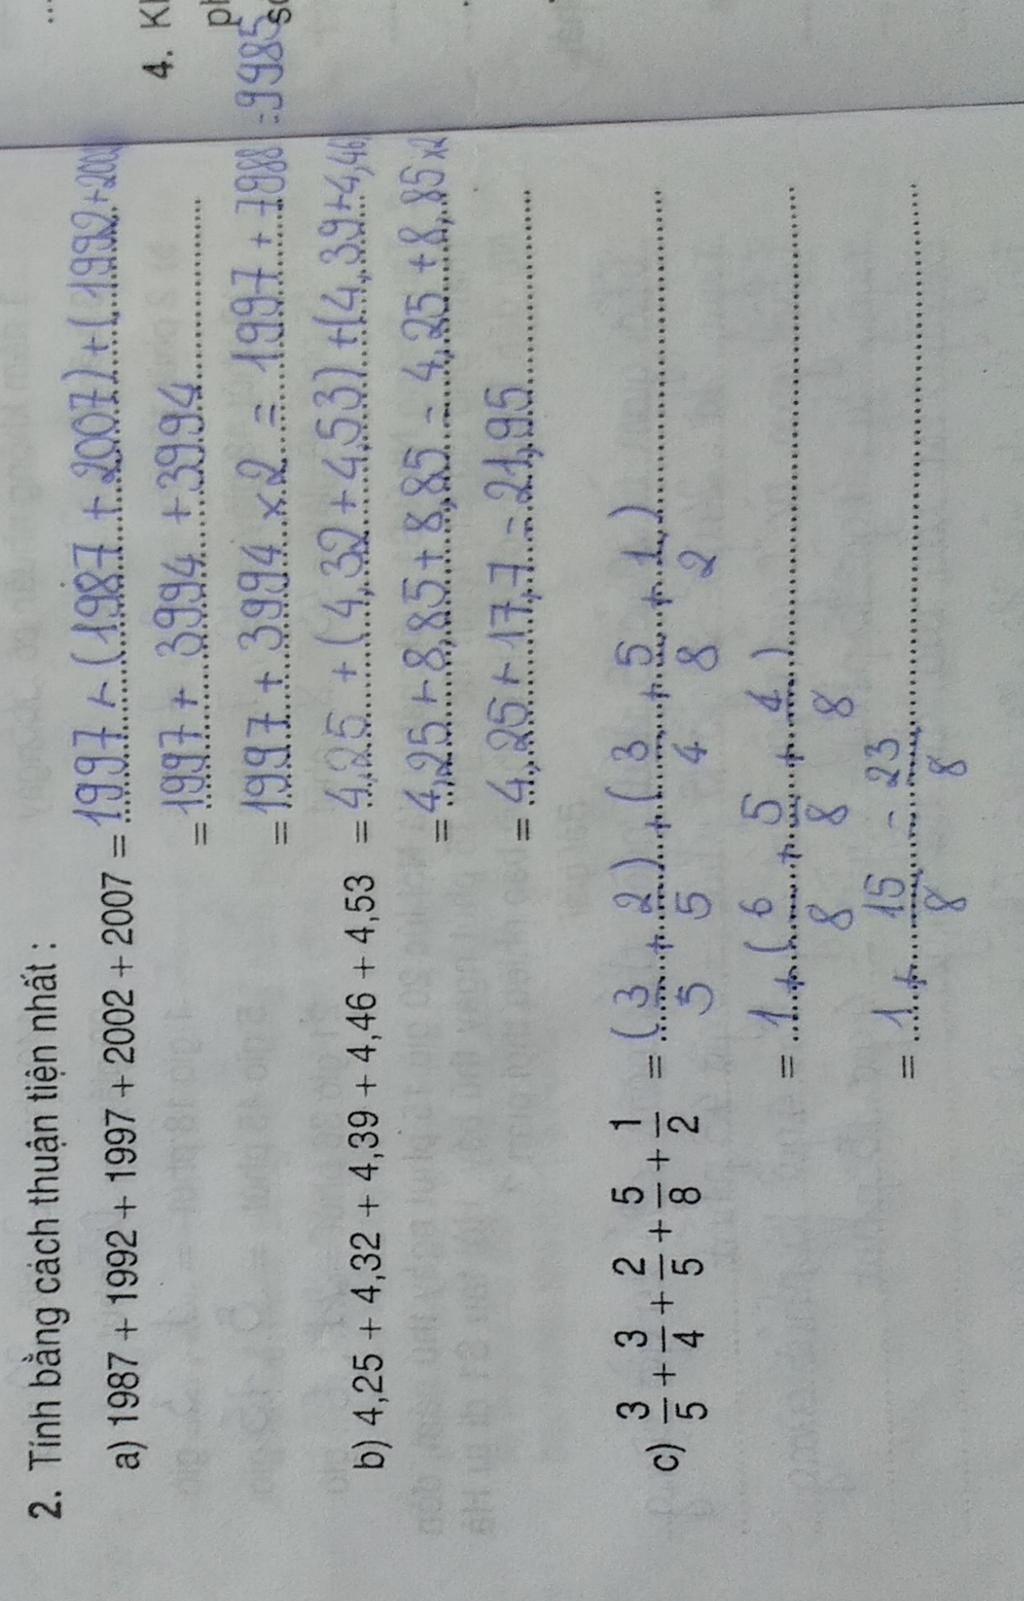 2. Tính bằng cách thuận tiện nhất :
a) 1987 + 1992 + 1997 + 2002 + 2007 = 1997 + (1987 + 2007) + (1992 + 2002
= 1997 + 3994 + 3994
= 1997 + 3994 x 2 = 1997 + 7988 = 9985
b) 4,25 + 4,32 + 4,39 + 4,46 + 4,53 = 4,25 + (4,32 + 4,53) + (4,39 + 4,46
= 4,25 + 8,85 + 8,85 = 4,25 + 8,85 x2
= 4,25 + 17,7 = 21,95
c) 3/5 + 3/4 + 2/5 + 5/8 + 1/2 = (3/5 + 2/5) + (3/4 + 5/8 + 1/2)
= 1 + (6/8 + 5/8 + 4/8)
= 1 + 15/8 = 23/8
4.